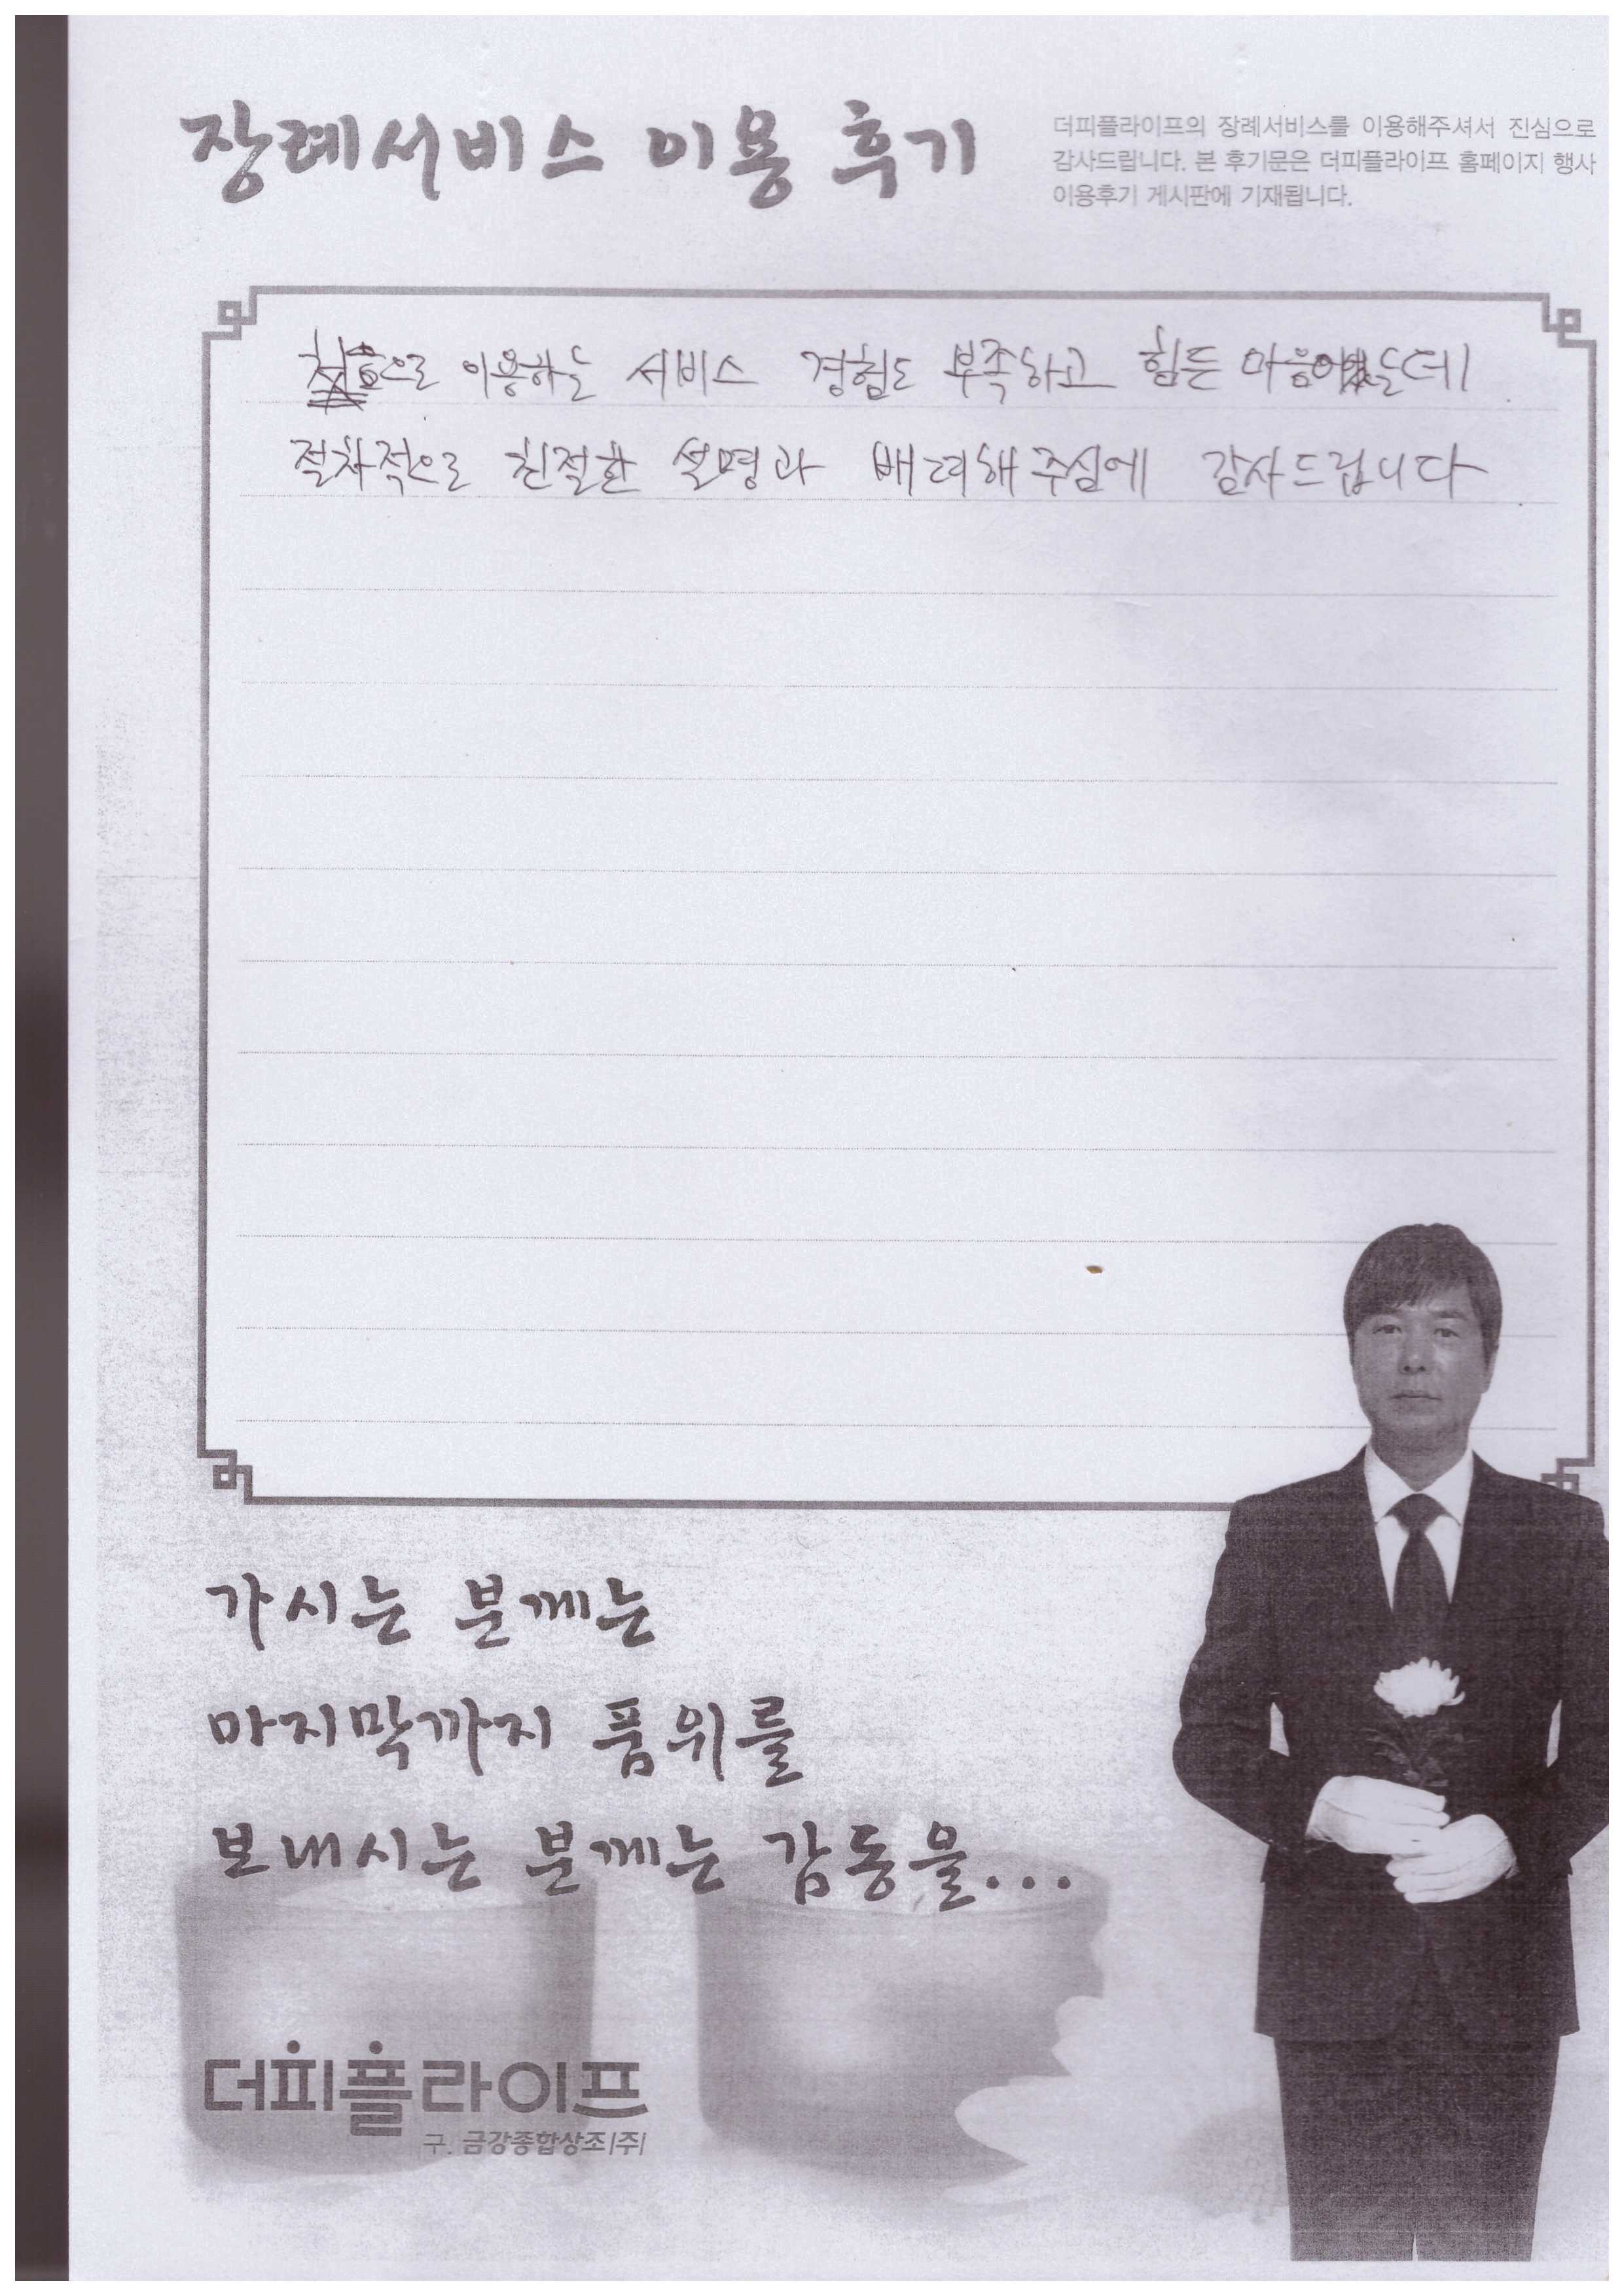 장례서비스 이용 후기
더피플라이프의 장례서비스를 이용해주셔서 진심으로
감사드립니다. 본 후기문은 더피플라이프 홈페이지 행사
이용후기 게시판에 기재됩니다.
처음으로 이용하는 서비스 경험도 부족하고 힘든 마음이었는데
절차적으로 친절한 설명과 배려해 주심에 감사드립니다.
가시는 분께는
마지막까지 품위를
보내시는 분께는 감동을...
더피플라이프
구. 금강종합상조(주)